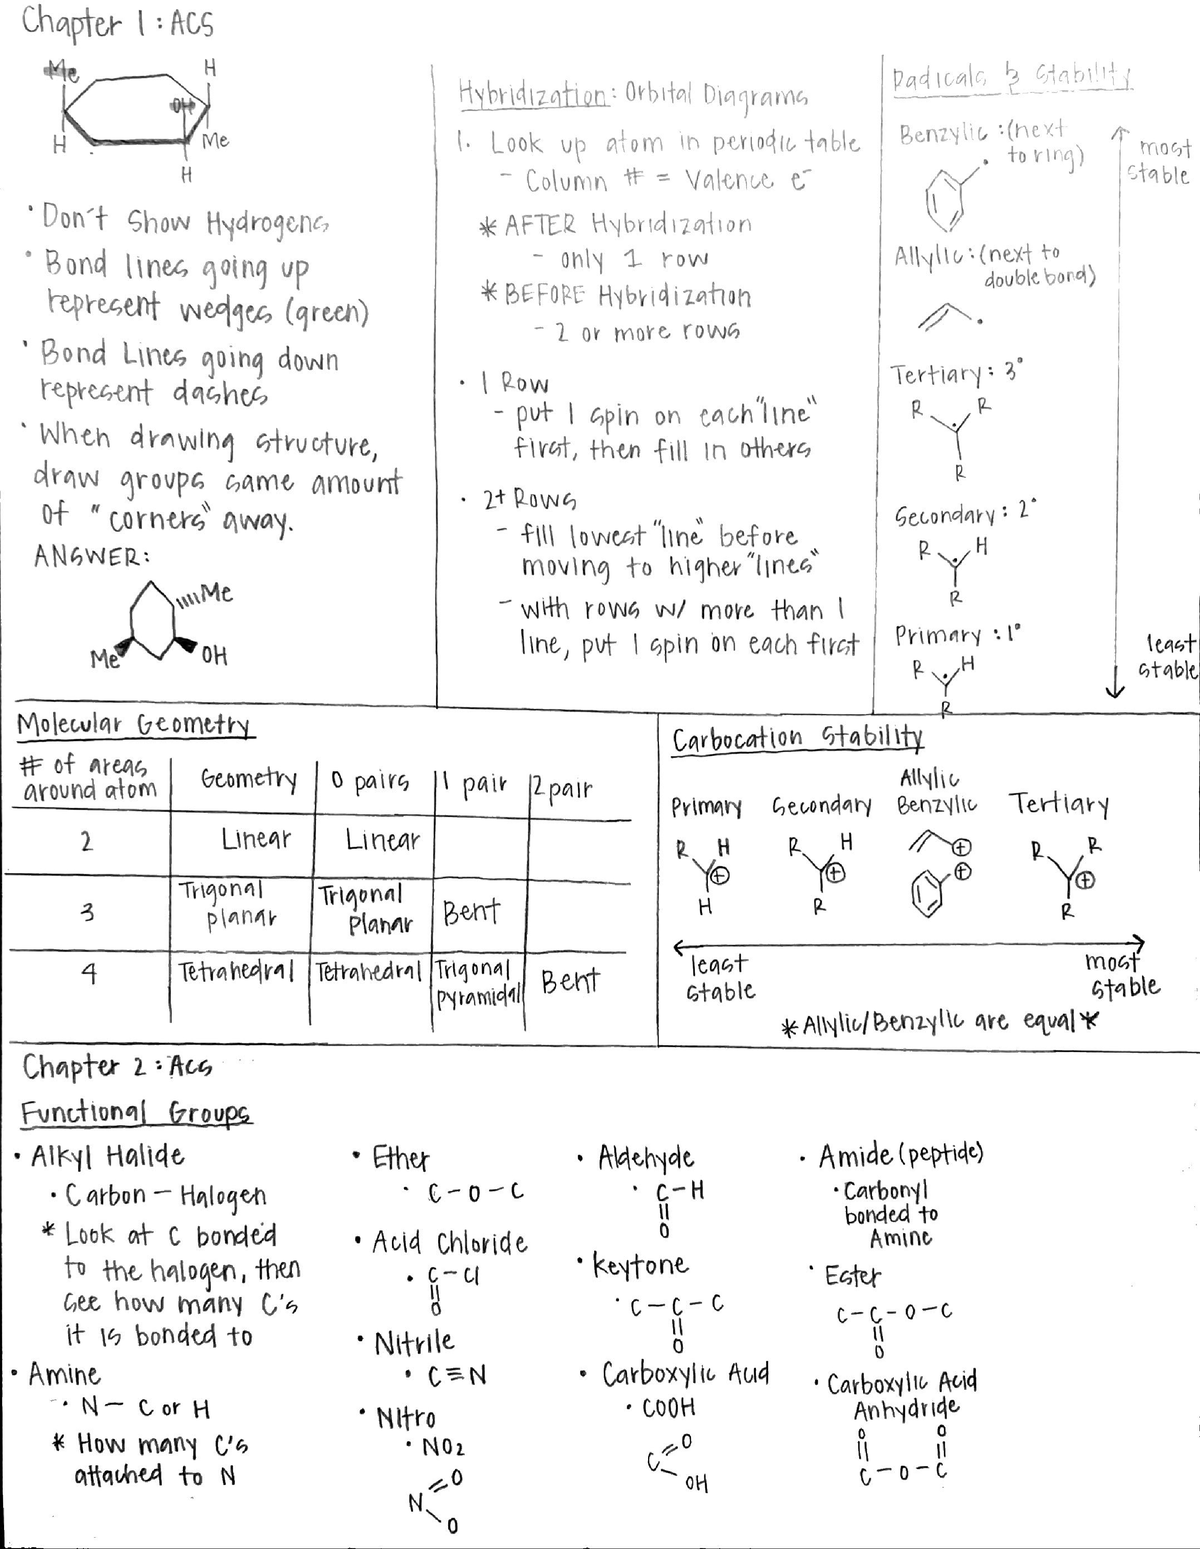 Chapter 1: ACS
Me
H
OH
H
Me
H
• Don't show Hydrogens
• Bond lines going up
represent wedges (green)
• Bond Lines going down
represent dashes
• When drawing structure,
draw groups same amount
of "corners" away.
ANSWER:
Me
Me
OH
Hybridization: Orbital Diagrams
1. Look up atom in periodic table
- Column # = Valence e⁻
* AFTER Hybridization
- only 1 row
* BEFORE Hybridization
- 2 or more rows
• 1 Row
- put 1 spin on each "line"
first, then fill in others
• 2+ Rows
- fill lowest "line" before
moving to higher "lines"
- with rows w/ more than 1
line, put 1 spin on each first
Radicals & Stability
Benzylic: (next
to ring)
most
stable
Allylic: (next to
double bond)
Tertiary: 3°
R R
R
Secondary: 2°
R H
R
Primary: 1°
R H
R
least
stable
Molecular Geometry
# of areas
around atom
Geometry
0 pairs
1 pair
2 pair
2
Linear
Linear
3
Trigonal
planar
Trigonal
Planar
Bent
4
Tetrahedral
Tetrahedral
Trigonal
pyramidal
Bent
Carbocation Stability
Primary
Secondary
Allylic
Benzylic
Tertiary
R H
⊕
H
R H
⊕
R
⊕
⊕
R R
⊕
R
least
stable
most
stable
* Allylic/Benzylic are equal *
Chapter 2: ACS
Functional Groups
• Alkyl Halide
• Carbon - Halogen
* Look at C bonded
to the halogen, then
see how many C's
it is bonded to
• Amine
• N- C or H
* How many C's
attached to N
• Ether
• C-O-C
• Acid Chloride
• C-Cl
O
• Nitrile
• C≡N
• Nitro
• NO2
O
N
O
• Aldehyde
• C-H
O
• keytone
• C-C-C
O
• Carboxylic Acid
• COOH
O
C
OH
• Amide (peptide)
• Carbonyl
bonded to
Amine
• Ester
C-C-O-C
O
• Carboxylic Acid
Anhydride
O O
C-O-C